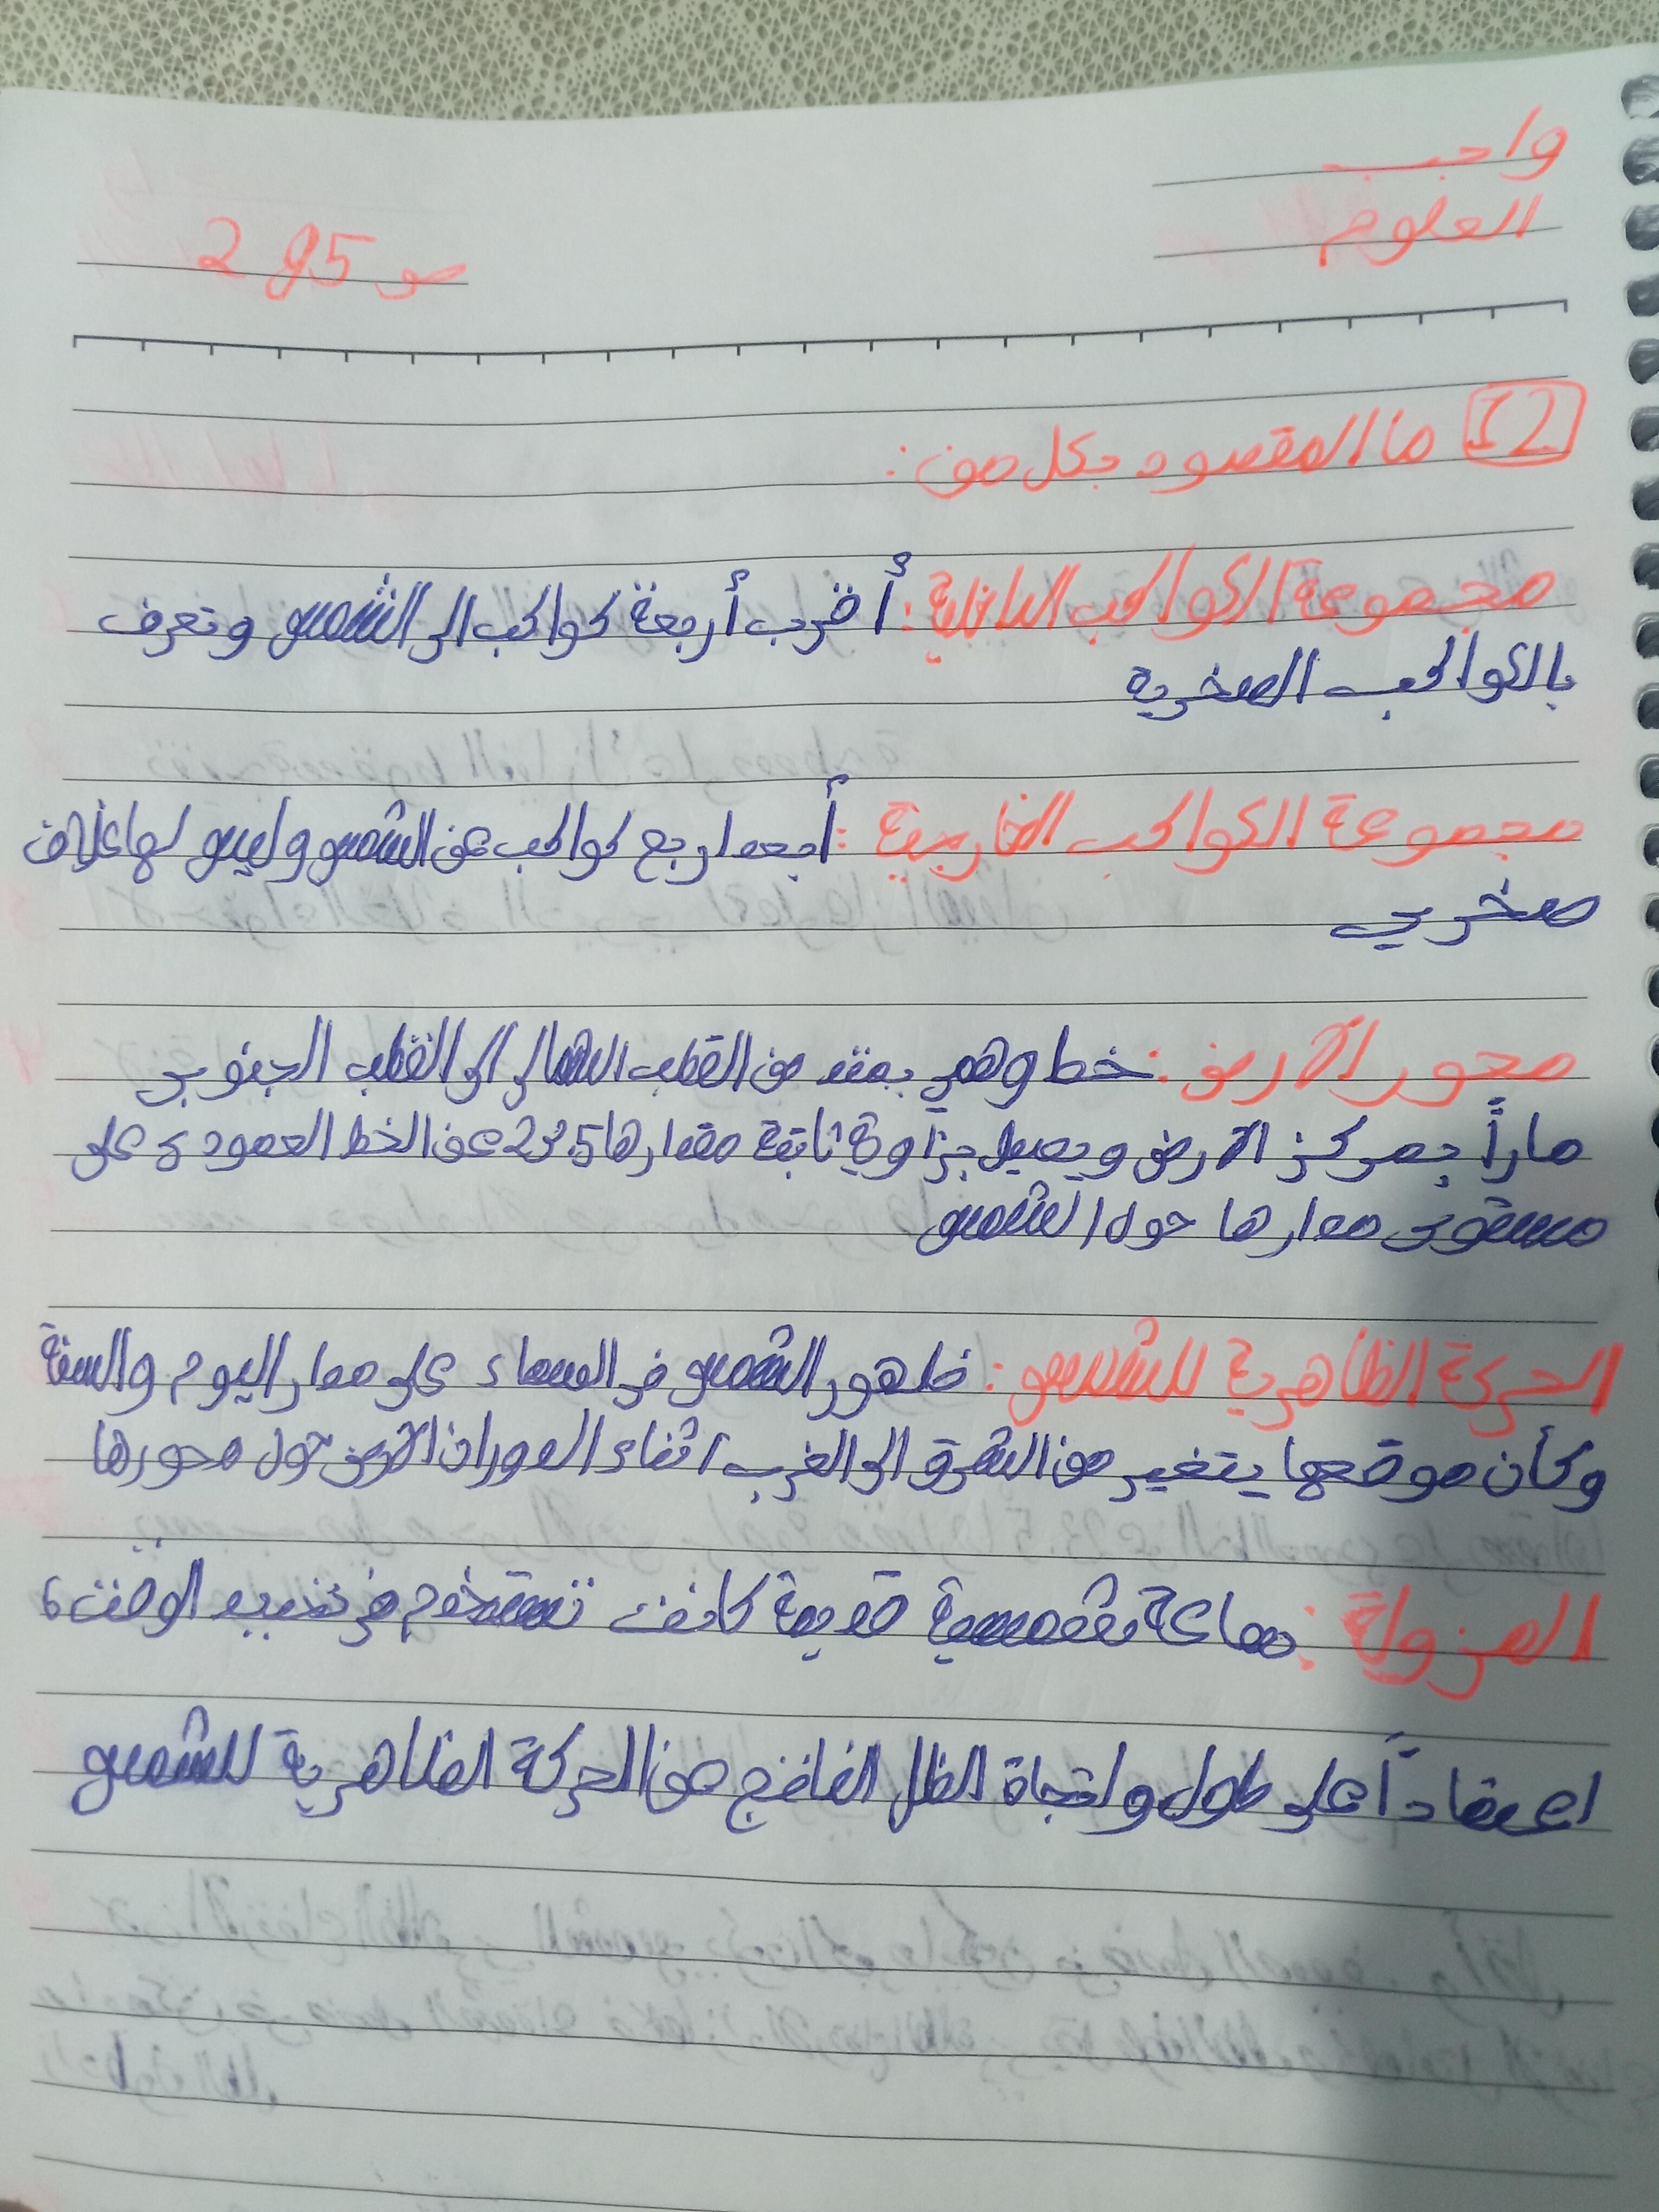 واجب
العلوم
ص 295
12 ما المقصود بكل من :
مجموعة الكواكب الداخلية : أقرب أربعة كواكب الى الشمس وتعرف
بالكواكب الصخرية
مجموعة الكواكب الخارجية : أبعد اربع كواكب عن الشمس وليس لها غلاف
صخري
محور الأرض : خط وهمي يمتد من القطب الشمالي الى القطب الجنوبي
ماراً بمركز الارض ويميل بزاوية ثابتة مقدارها 23.5 عن الخط العمودي على
مستوى مدارها حول الشمس
الحركة الظاهرية للشمس : ظهور الشمس في السماء على مدار اليوم والسنة
وكأن موقعها يتغير من الشرق الى الغرب اثناء الدوران الأرض حول محورها
المزولة : ساعة شمسية قديمة كانت تستخدم في تحديد الوقت ،
اعتماداً على طول واتجاة الظل الناتج من الحركة الظاهرية للشمس